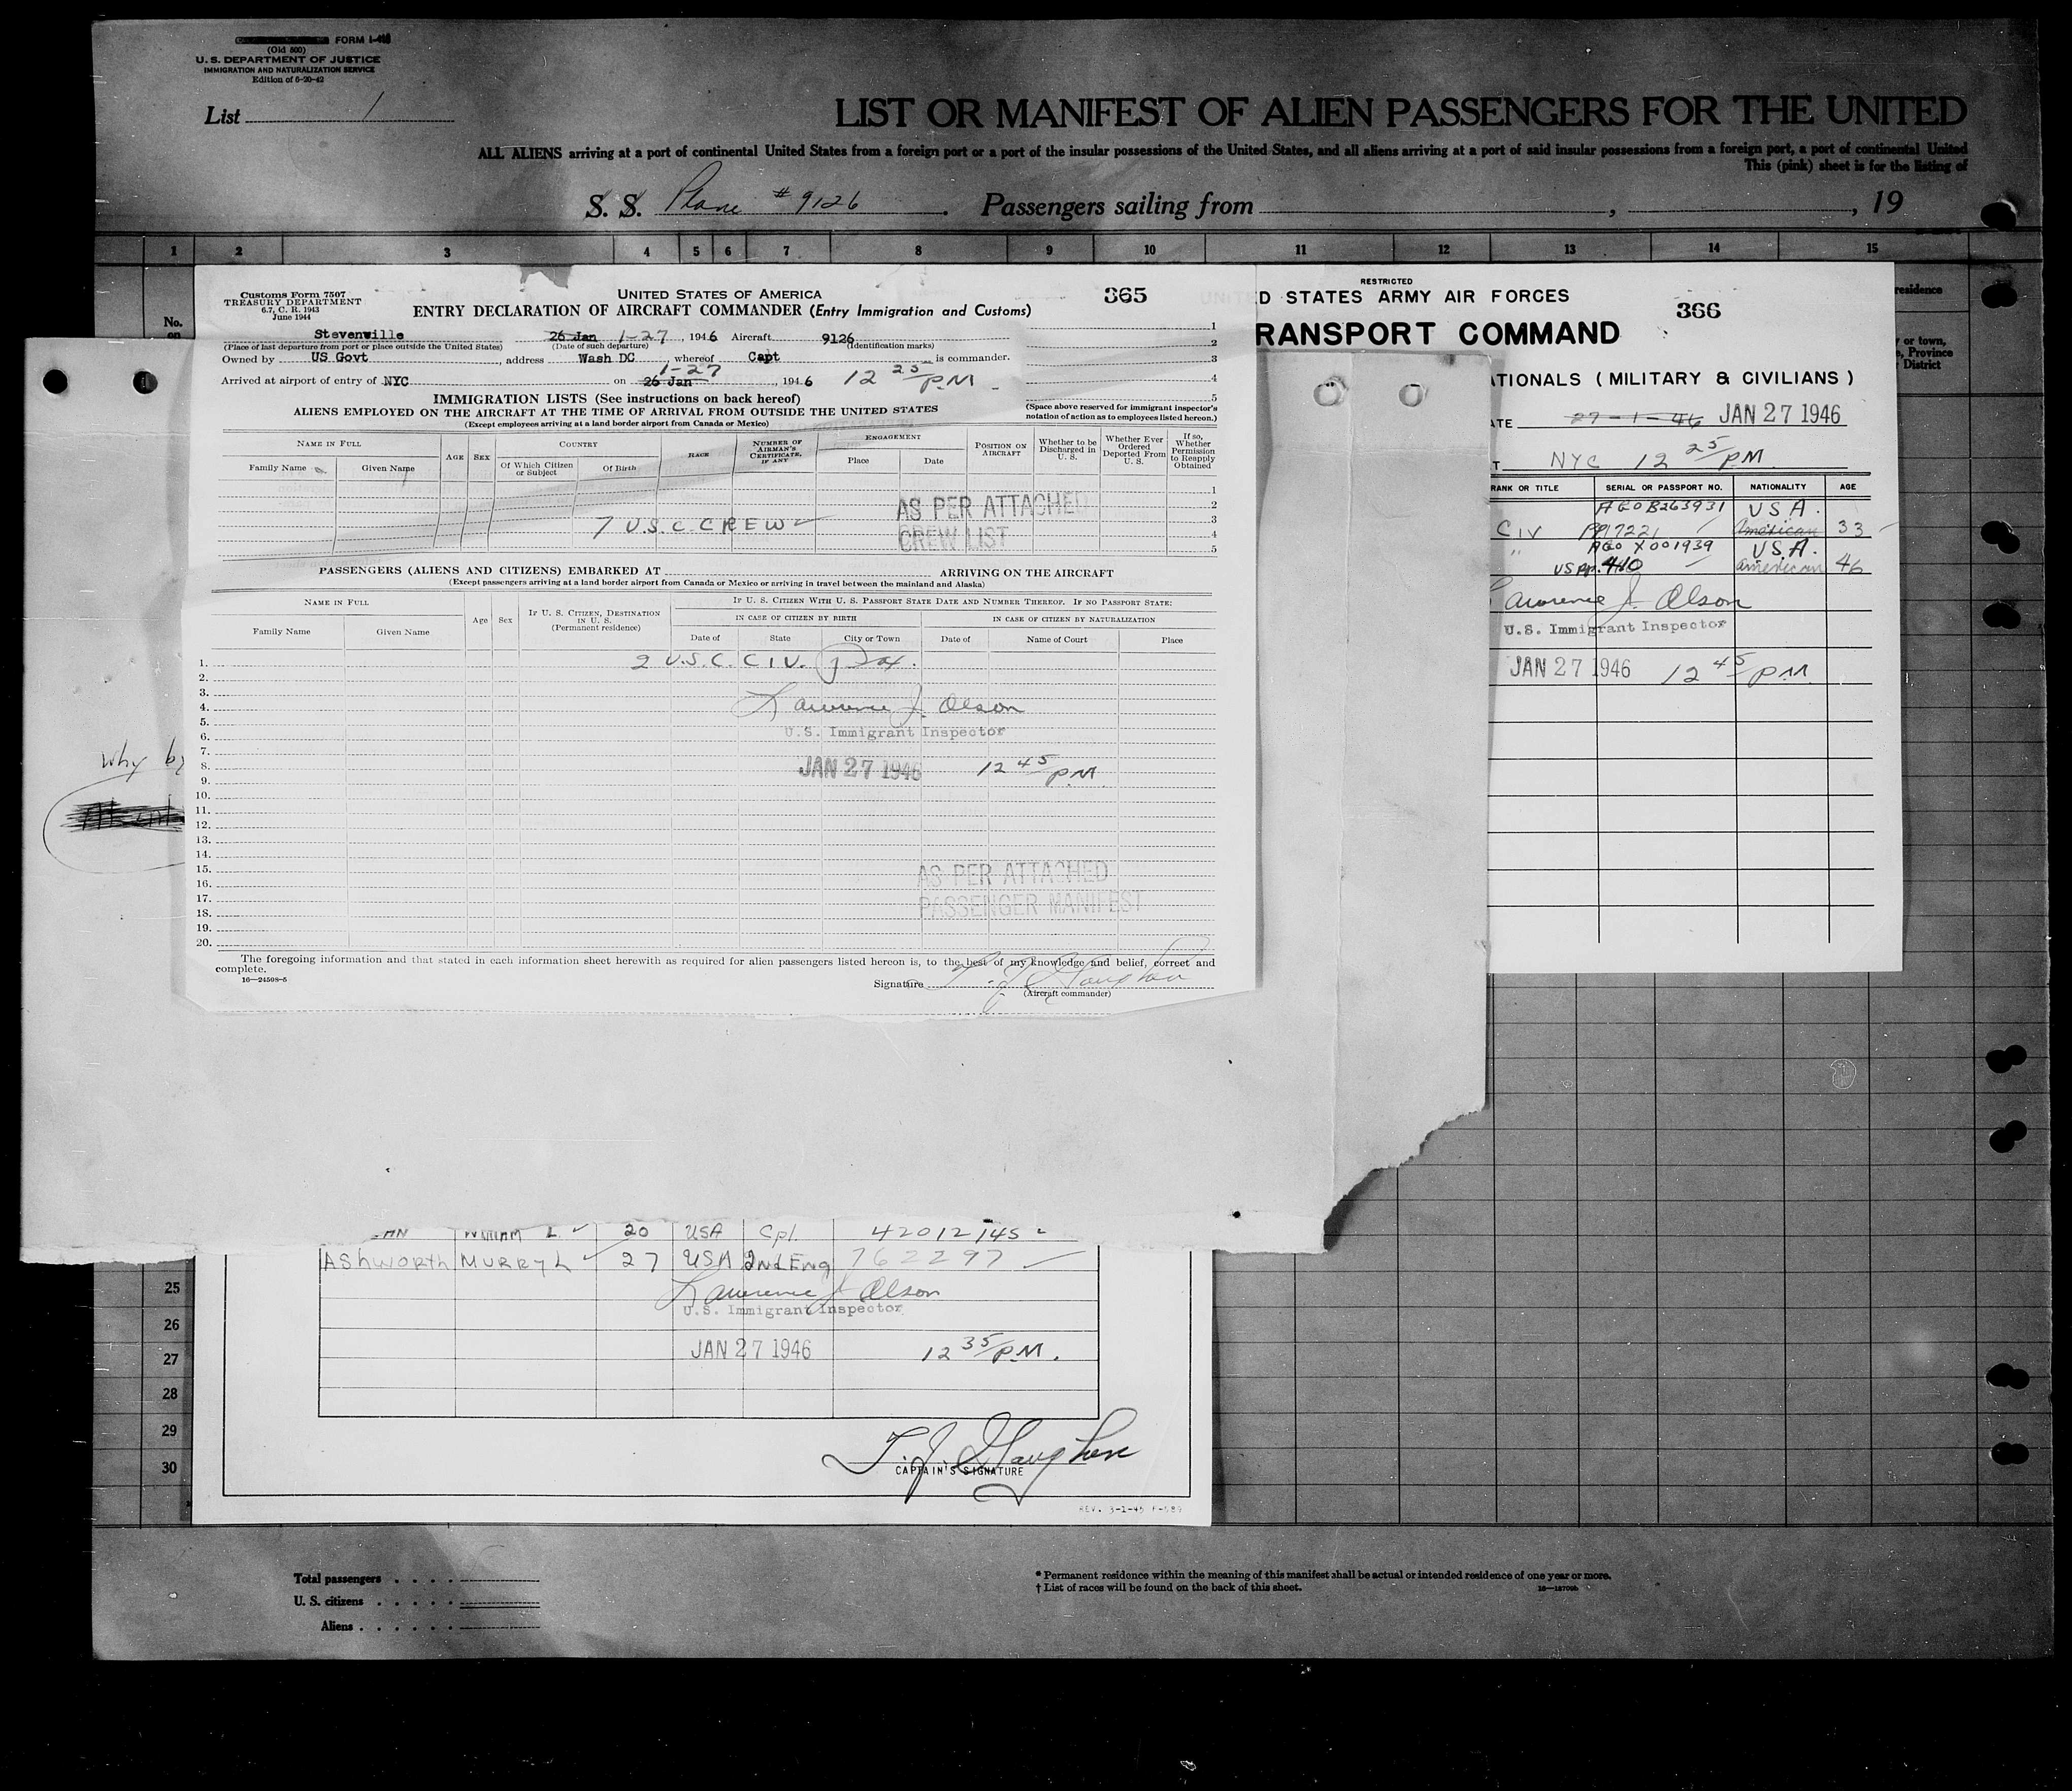 FORM I-418
(Old 500)
U. S. DEPARTMENT OF JUSTICE
IMMIGRATION AND NATURALIZATION SERVICE
Edition of 6-20-42
List 1
LIST OR MANIFEST OF ALIEN PASSENGERS FOR THE UNITED
ALL ALIENS arriving at a port of continental United States from a foreign port or a port of the insular possessions of the United States, and all aliens arriving at a port of said insular possessions from a foreign port, a port of continental United
This (pink) sheet is for the listing of
S. S. Plane #9126 . Passengers sailing from , , 19
1 2 3 4 5 6 7 8 9 10 11 12 13 14 15
No.
on
residence
or town,
Province
District
Customs Form 7507
TREASURY DEPARTMENT
6.7, C. R. 1943
June 1944
UNITED STATES OF AMERICA
365
ENTRY DECLARATION OF AIRCRAFT COMMANDER (Entry Immigration and Customs)
Stevenville 26 Jan 1-27, 1946 Aircraft 9126
(Place of last departure from port or place outside the United States) (Date of such departure) (Identification marks)
Owned by US Govt, address Wash DC, whereof Capt is commander.
1-27
Arrived at airport of entry of NYC on 26 Jan, 1946 12 25/PM
1
2
3
4
5
IMMIGRATION LISTS (See instructions on back hereof)
ALIENS EMPLOYED ON THE AIRCRAFT AT THE TIME OF ARRIVAL FROM OUTSIDE THE UNITED STATES
(Except employees arriving at a land border airport from Canada or Mexico)
(Space above reserved for immigrant inspector's notation of action as to employees listed hereon.)
NAME IN FULL
Family Name Given Name
AGE SEX
COUNTRY
Of Which Citizen or Subject Of Birth
RACE
NUMBER OF AIRMAN'S CERTIFICATE, IF ANY
ENGAGEMENT
Place Date
POSITION ON AIRCRAFT
Whether to be Discharged in U. S.
Whether Ever Ordered Deported From U. S.
If so, Whether Permission to Reapply Obtained
1
2
3
4
5
7 U.S.C. CREW
AS PER ATTACHED
CREW LIST
PASSENGERS (ALIENS AND CITIZENS) EMBARKED AT ARRIVING ON THE AIRCRAFT
(Except passengers arriving at a land border airport from Canada or Mexico or arriving in travel between the mainland and Alaska)
NAME IN FULL
Family Name Given Name
Age Sex
IF U. S. CITIZEN, DESTINATION IN U. S.
(Permanent residence)
IF U. S. CITIZEN WITH U. S. PASSPORT STATE DATE AND NUMBER THEREOF. IF NO PASSPORT STATE:
IN CASE OF CITIZEN BY BIRTH
IN CASE OF CITIZEN BY NATURALIZATION
Date of State City or Town Date of Name of Court Place
1. 2 U.S.C. CIV.
2.
3.
4. Lawrence J. Olson
5.
6. U.S. Immigrant Inspector
7.
8. JAN 27 1946 12 45/PM
9.
10.
11.
12.
13.
14.
15. AS PER ATTACHED
16.
17. PASSENGER MANIFEST
18.
19.
20.
The foregoing information and that stated in each information sheet herewith as required for alien passengers listed hereon is, to the best of my knowledge and belief, correct and
complete.
16—24598-5
Signature T. J. Gaughen
(Aircraft commander)
RESTRICTED
UNITED STATES ARMY AIR FORCES
366
RANSPORT COMMAND
TIONALS (MILITARY & CIVILIANS)
ATE 27-1-46 JAN 27 1946
T NYC 12 25/PM
RANK OR TITLE SERIAL OR PASSPORT NO. NATIONALITY AGE
AGO B263931 USA.
CIV PP 17221 American 33
AGO X001939 USA.
" US pp. 410 american 46
Lawrence J. Olson
U.S. Immigrant Inspector
JAN 27 1946 12 45/PM
Why
AN William L. 20 USA Cpl. 42012145
Ashworth Murry L 27 USA 2nd Eng 762297
Lawrence J Olson
U.S. Immigrant Inspector
JAN 27 1946 12 35/P.M.
25
26
27
28
29
30
T. J. Gaughen
CAPTAIN'S SIGNATURE
REV. 3-1-45
Total passengers
U. S. citizens
Aliens
* Permanent residence within the meaning of this manifest shall be actual or intended residence of one year or more.
† List of races will be found on the back of this sheet.